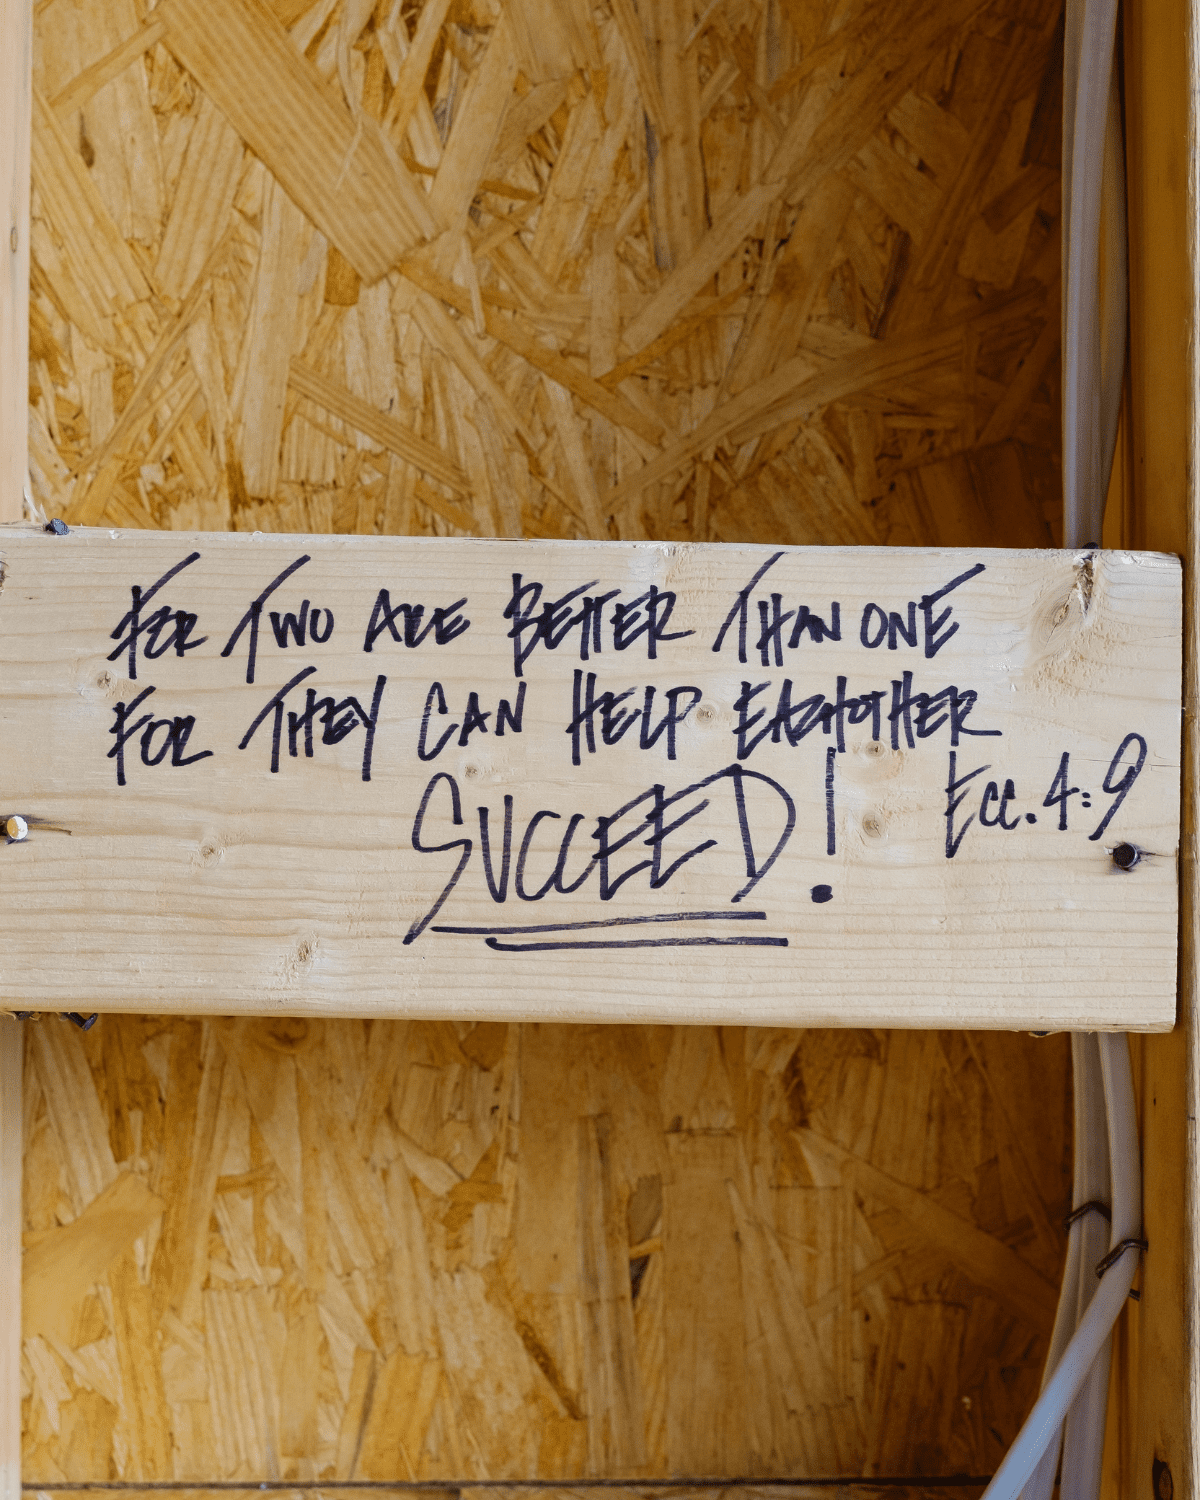 FOR TWO ARE BETTER THAN ONE
FOR THEY CAN HELP EACHOTHER
SUCCEED!
Ecc. 4:9